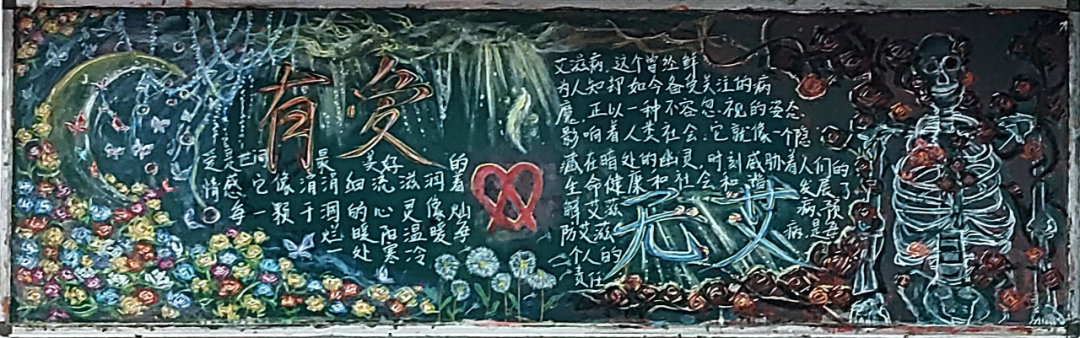 有爱
是世间最美好的
情感它像涓涓细流滋润着
每一颗干涸的心灵像灿
烂的暖阳温暖每
处寒冷
艾滋病,这个曾经鲜
为人知却如今备受关注的病
魔,正以一种不容忽视的姿态
影响着人类社会,它就像一个隐
藏在暗处的幽灵,时刻威胁着人们的
生命健康和社会和谐发展了
解艾滋病,预
防艾滋病是每
一个人的
责任
无艾